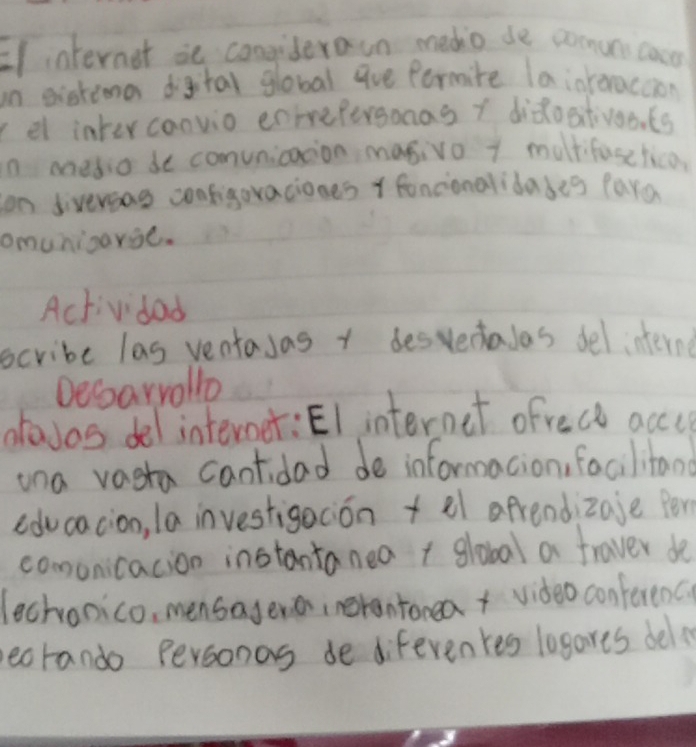 El internet se considera un medio de comunicacio
un sistema digital global que Permite la interaccion
Y el intercanvio entrePersonas Y dispositivos.Es
n medio de comunicacion, masivo Y multifasetica,
con diversas configoraciones Y foncionalidades Para
omunicarse.
Actividad
scribe las ventaJas Y desventaJas del interne
Desarrollo
ntaJas del internet: El internet ofrece acce
una vasta cantidad de informacion, facilitand
educacion, la investigación Y el aPrendizaje Perm
comonicacion instantanea Y global a traver de
lectronico, mensaJeria instantanea Y video conferenci
ectando Personas de diferentes logares del m